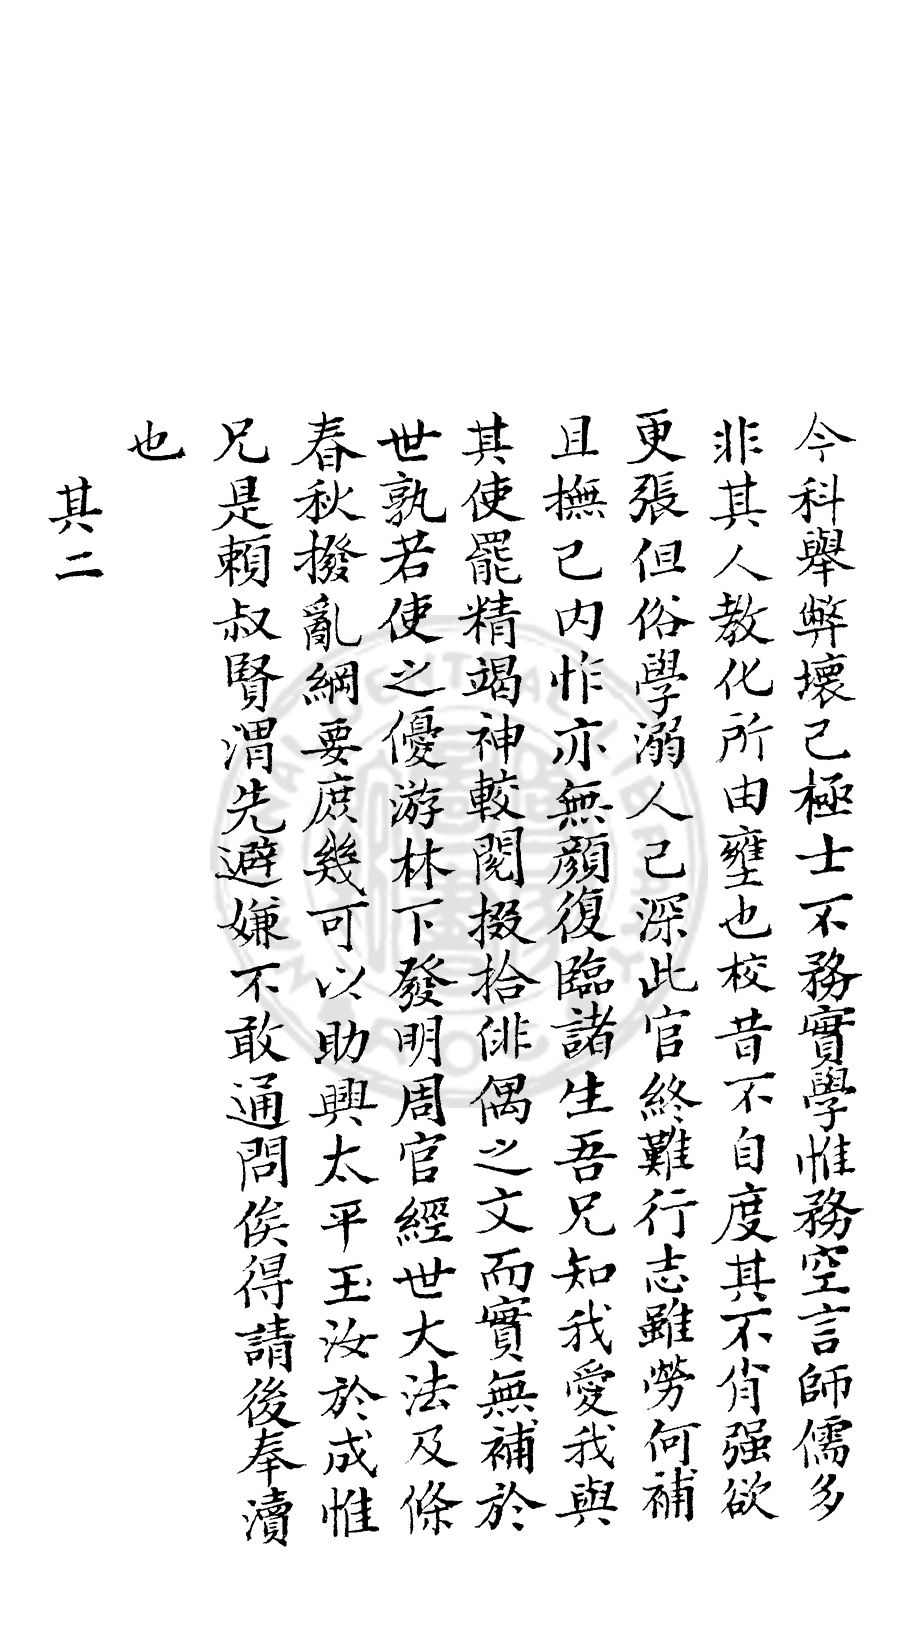 今科舉弊壞已極士不務實學惟務空言師儒多
非其人教化所由壅也校昔不自度其不肖强欲
更張但俗學溺人已深此官終難行志雖勞何補
且撫己內怍亦無顏復臨諸生吾兄知我愛我與
其使罷精竭神較閱掇拾俳偶之文而實無補於
世孰若使之優游林下發明周官經世大法及條
春秋撥亂綱要庶幾可以助興太平玉汝於成惟
兄是賴叔賢渭先避嫌不敢通問俟得請後奉瀆
也
其二